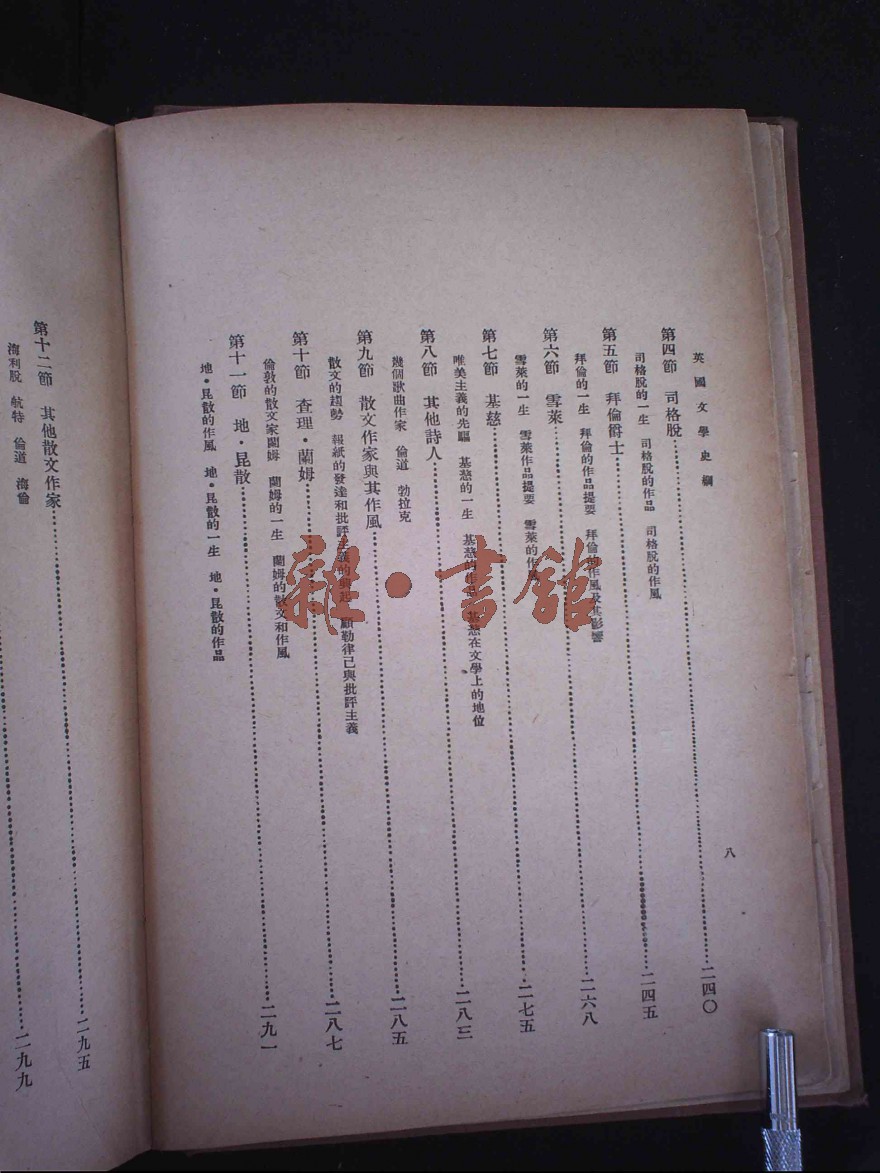 英國文學史綱
第四節 司格脫……二四〇
司格脫的一生 司格脫的作品 司格脫的作風
第五節 拜倫爵士……二四五
拜倫的一生 拜倫的作品提要 拜倫的作風及其影響
第六節 雪萊……二六八
雪萊的一生 雪萊作品提要 雪萊的作風
第七節 基慈……二七五
唯美主義的先驅 基慈的一生 基慈的作品 基慈在文學上的地位
第八節 其他詩人……二八三
幾個歌曲作家 倫道 勃拉克
第九節 散文作家與其作風……二八五
散文的趨勢 報紙的發達和批評主義的興起 顧勒律己與批評主義
第十節 查理·蘭姆……二八七
倫敦的散文家蘭姆 蘭姆的一生 蘭姆的散文和作風
第十一節 地·昆散……二九一
地·昆散的作風 地·昆散的一生 地·昆散的作品
八
第十二節 其他散文作家……二九五
海利脫 航特 倫道 海倫
……二九九
雜·書館